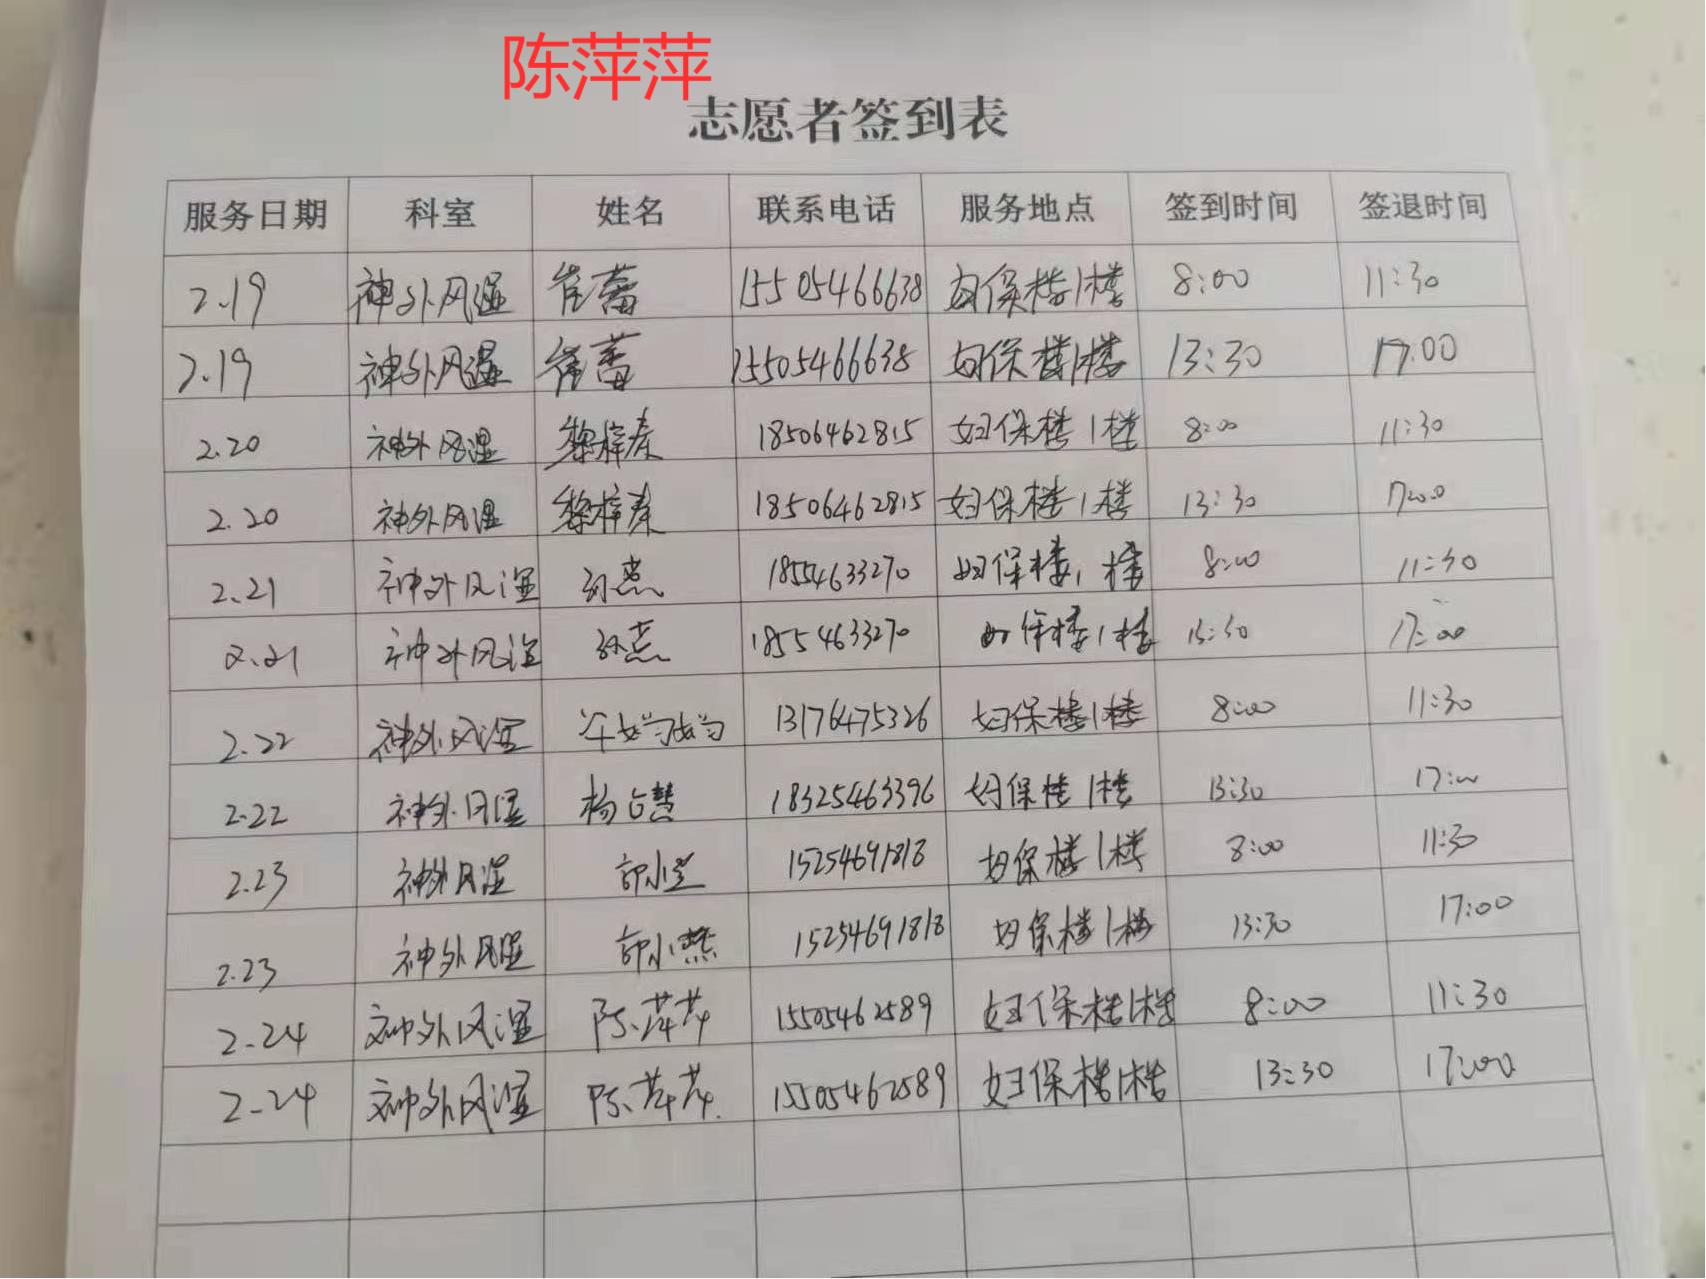 陈萍萍
志愿者签到表
服务日期 科室 姓名 联系电话 服务地点 签到时间 签退时间
2.19 神外风湿 崔蕾 15505466638 妇保楼1楼 8:00 11:30
2.19 神外风湿 崔蕾 15505466638 妇保楼1楼 13:30 17:00
2.20 神外风湿 黎梓秦 18506462815 妇保楼1楼 8:00 11:30
2.20 神外风湿 黎梓秦 18506462815 妇保楼1楼 13:30 17:00
2.21 神外风湿 18554633270 妇保楼1楼 8:00 11:30
2.21 神外风湿 18554633270 妇保楼1楼 13:30 17:00
2.22 神外风湿 13176475326 妇保楼1楼 8:00 11:30
2.22 神外风湿 杨占慧 18325463396 妇保楼1楼 13:30 17:00
2.23 神外风湿 15254691818 妇保楼1楼 8:00 11:30
2.23 神外风湿 15254691818 妇保楼1楼 13:30 17:00
2.24 神外风湿 陈萍萍 15505462589 妇保楼1楼 8:00 11:30
2.24 神外风湿 陈萍萍 15505462589 妇保楼1楼 13:30 17:00